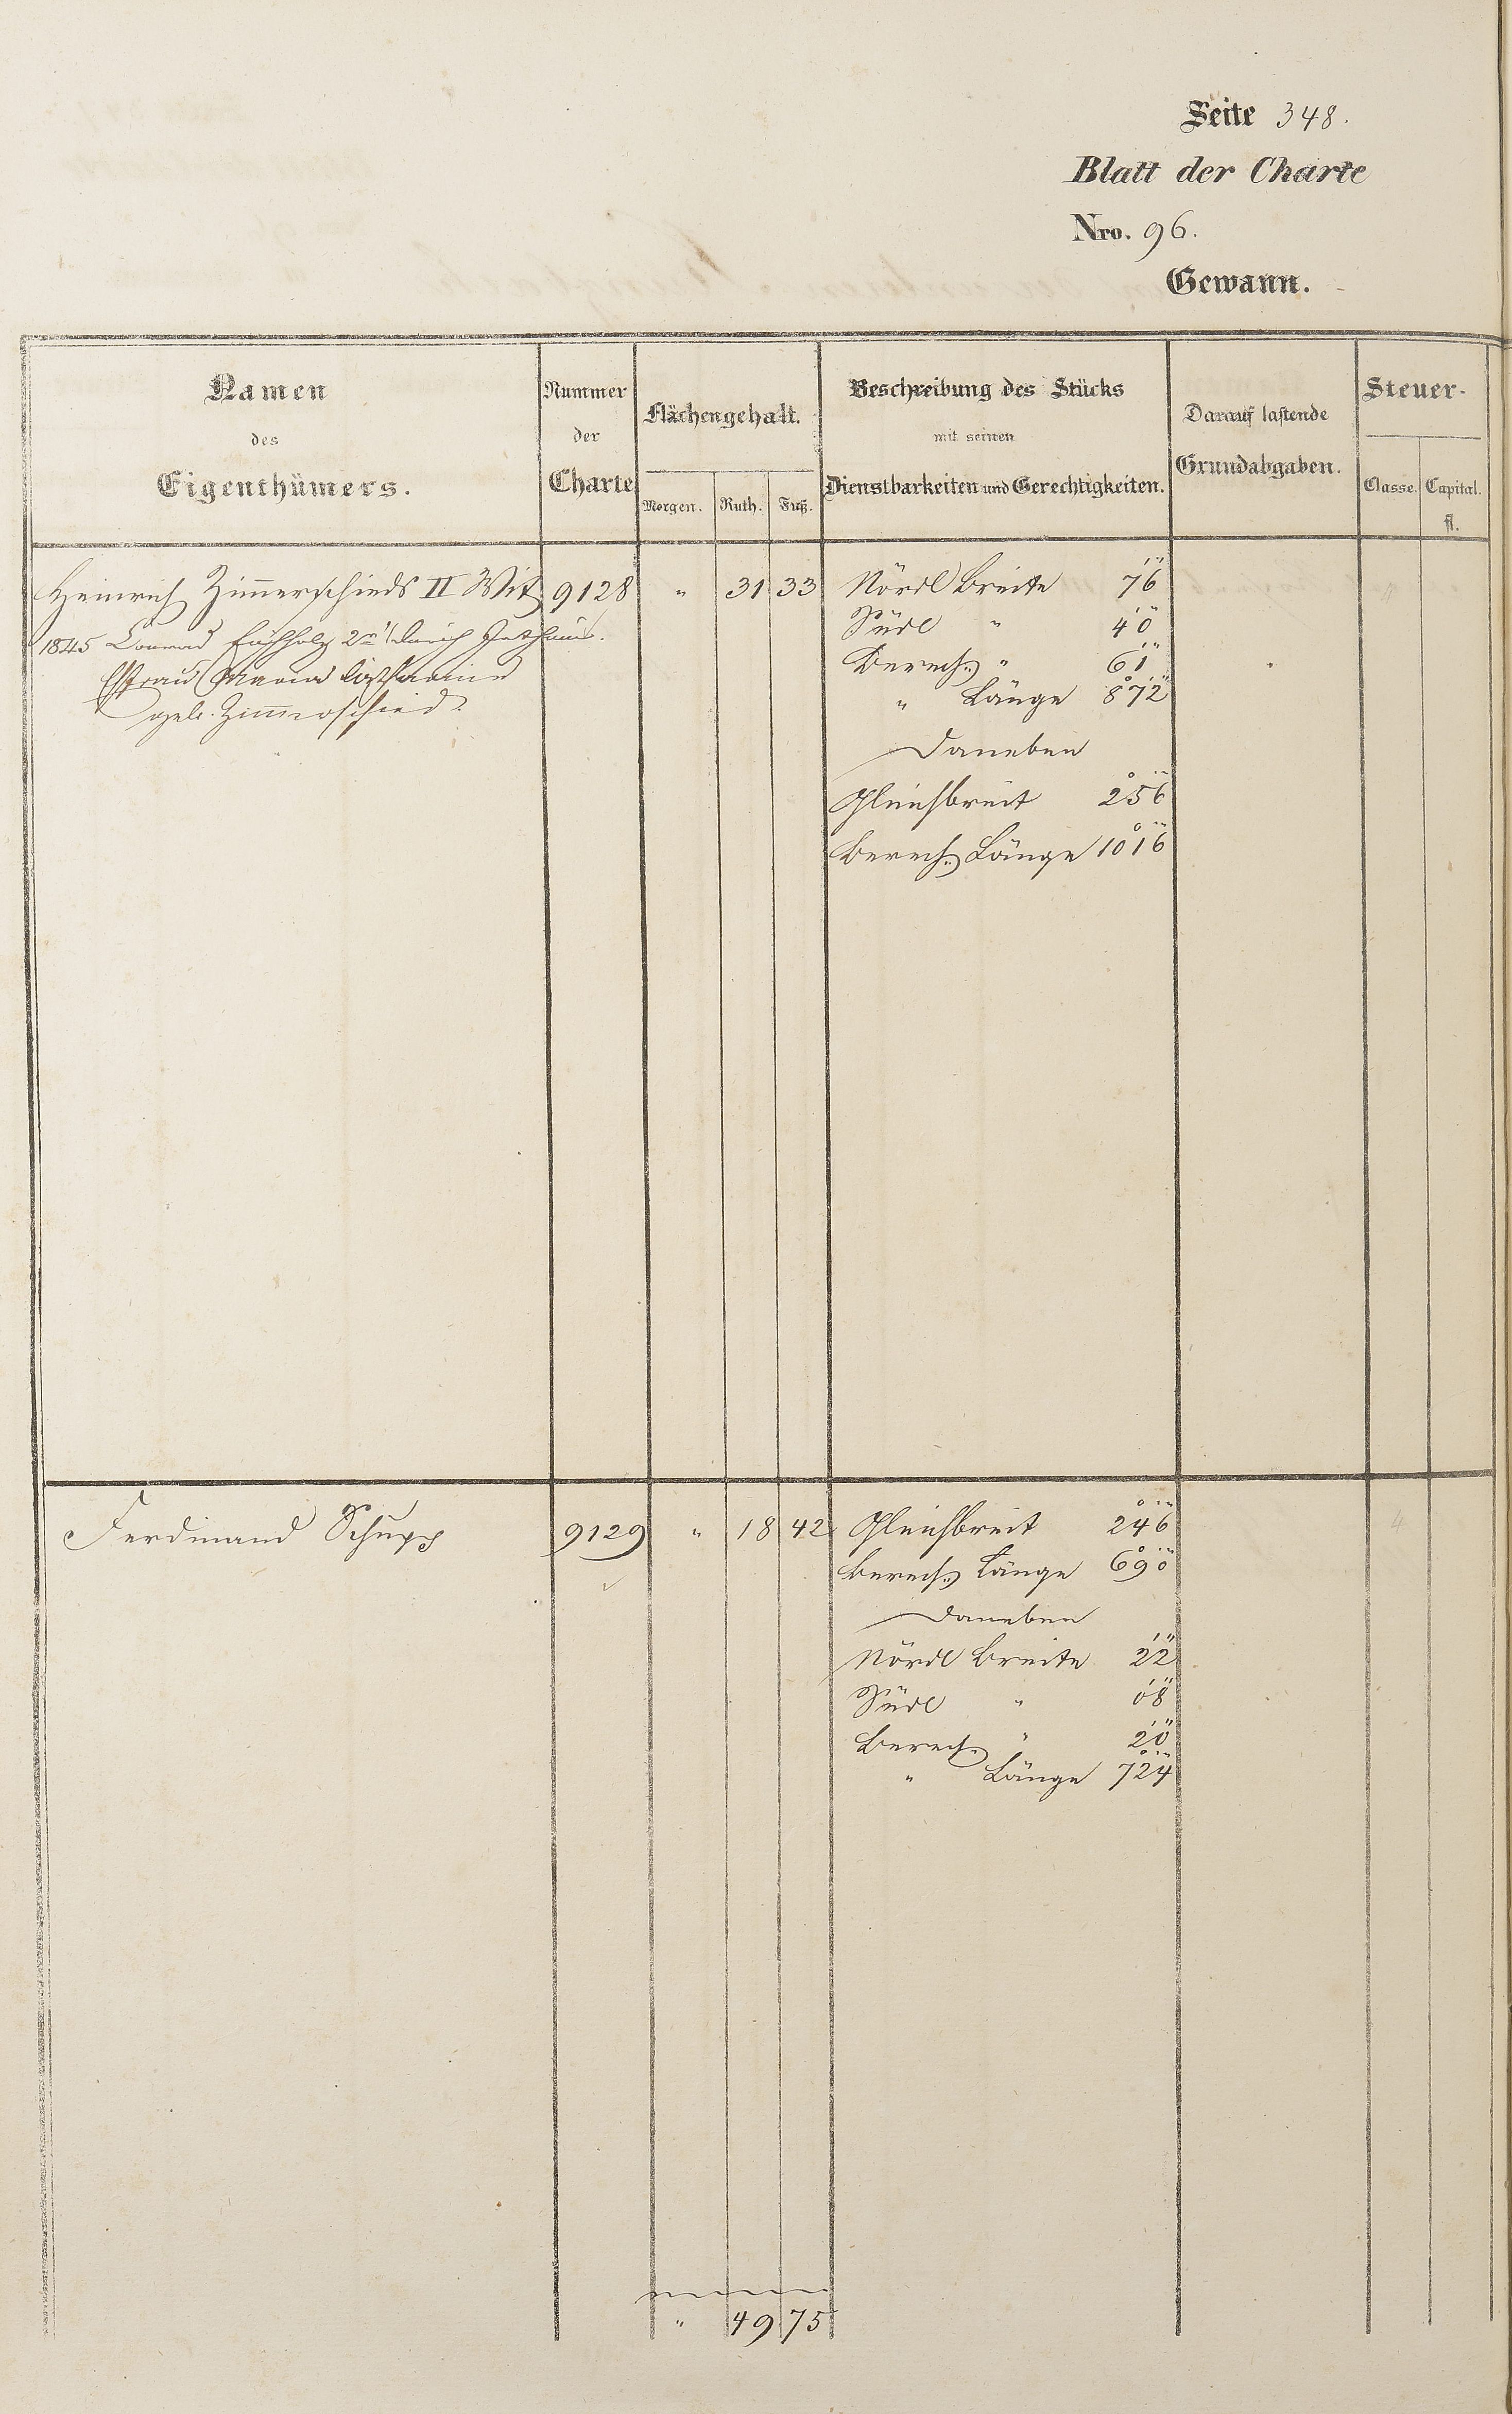 Seite 348.
Blatt der Charte
Nro. 96.
Gewann.
Namen
des
Eigenthümers.
Nummer
der
Charte
Flächengehalt.
Morgen. Ruth. Fuß.
Beschreibung des Stücks
mit seinen
Dienstbarkeiten und Gerechtigkeiten.
Darauf lastende
Grundabgaben.
Steuer-
Classe. Capital.
fl.
Heinrich Zimerschieds II Wit 9128 " 31 33 Nördl Breite 7'6"
1845 Conrad durch
Südl " 4'0"
Ehfrau Maria
Berech. " 6'1"
geb. Zimerschied.
" Länge 8°7'2"
Daneben
Gleichbreit 2°5'6"
Berech. Länge 10°1'6"
Ferdinand Schupp 9129 " 18 42 Gleichbreit 2°4'6"
Berech. Länge 6°9'0"
Daneben
Nördl Breite 2'2"
Südl " 0'8"
Berech. " 2'0"
" Länge 7°2'4"
" 49 75